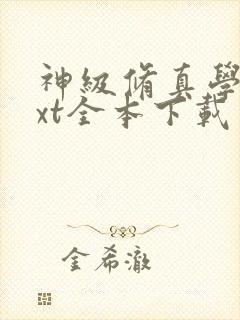 神級脩真學
xt全本下載
金希澈